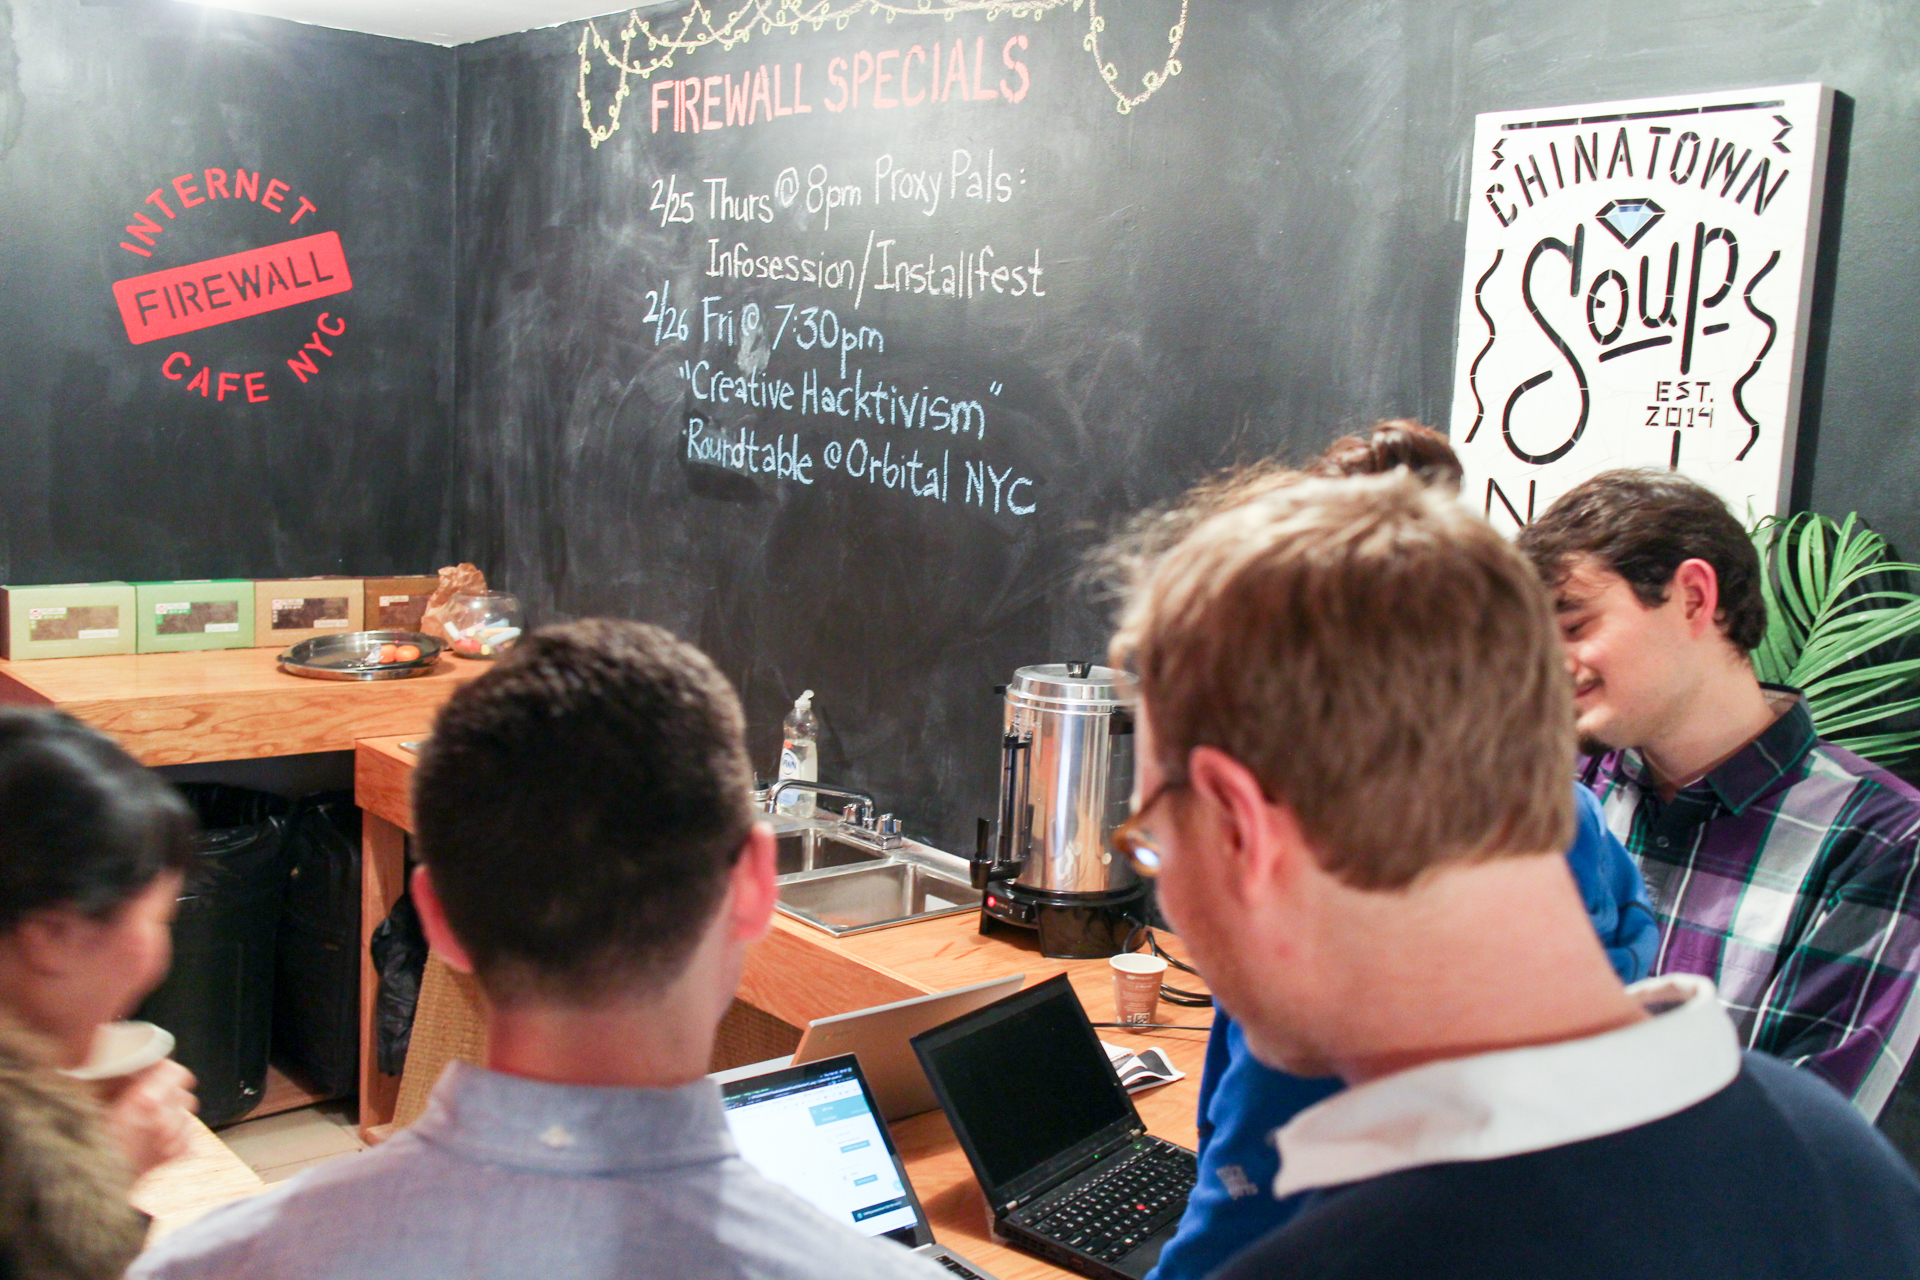 INTERNET
FIREWALL
CAFE NYC
FIREWALL SPECIALS
2/25 Thurs @ 8pm Proxy Pals:
Infosession/Installfest
2/26 Fri @ 7:30pm
"Creative Hacktivism"
Roundtable @ Orbital NYC
CHINATOWN
Soup
EST.
2014
N